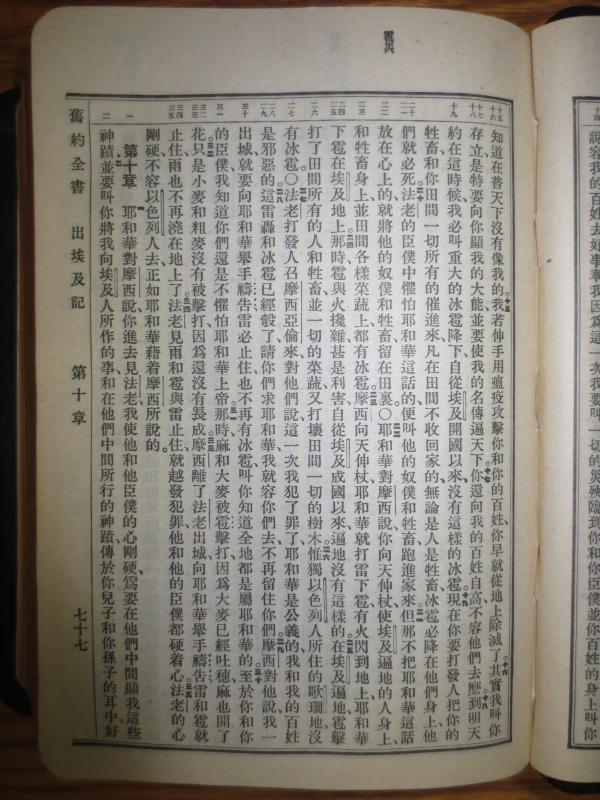 雹災
知道在普天下沒有像我的、我若伸手用瘟疫攻擊你和你的百姓、你早就從地上除滅了。其實我叫你
存立、是特要向你顯我的大能、並要使我的名傳遍天下。你還向我的百姓自高、不容他們去麼。到明天
約在這時候、我必叫重大的冰雹降下、自從埃及開國以來、沒有這樣的冰雹。現在你要打發人把你的
牲畜和你田間一切所有的催進來、凡在田間不收回家的、無論是人是牲畜、冰雹必降在他們身上、他
們就必死。法老的臣僕中懼怕耶和華這話的、便叫他的奴僕和牲畜跑進家來。但那不把耶和華這話
放在心上的、就將他的奴僕和牲畜留在田裏。〇耶和華對摩西說、你向天伸杖、使埃及遍地的人身上、
和牲畜身上、並田間各樣菜蔬上、都有冰雹。摩西向天伸杖、耶和華就打雷下雹、有火閃到地上、耶和華
下雹在埃及地上。那時雹與火攙雜、甚是利害、自從埃及成國以來、遍地沒有這樣的。在埃及遍地、雹擊
打了田間所有的人和牲畜、並一切的菜蔬、又打壞田間一切的樹木。惟獨以色列人所住的歌珊地、沒
有冰雹。〇法老打發人召摩西亞倫來、對他們說、這一次我犯了罪了、耶和華是公義的、我和我的百姓
是邪惡的。這雷轟和冰雹已經彀了、請你們求耶和華、我就容你們去、不再留住你們。摩西對他說、我一
出城、就要向耶和華舉手禱告、雷必止住、也不再有冰雹、叫你知道全地都是屬耶和華的。至於你和你
的臣僕、我知道你們還是不懼怕耶和華上帝。那時、麻和大麥被雹擊打、因爲大麥已經吐穗、麻也開了
花。只是小麥和粗麥沒有被擊打、因爲還沒有長成。摩西離了法老出城、向耶和華舉手禱告、雷和雹就
止住、雨也不再澆在地上了。法老見雨和雹與雷止住、就越發犯罪、他和他的臣僕都硬着心。法老的心
剛硬、不容以色列人去、正如耶和華藉着摩西所說的。
第十章 耶和華對摩西說、你進去見法老、我使他和他臣僕的心剛硬、爲要在他們中間顯我這些
神蹟、並要叫你將我向埃及人所作的事、和在他們中間所行的神蹟、傳於你兒子和你孫子的耳中、好
舊約全書 出埃及記 第十章 七十七